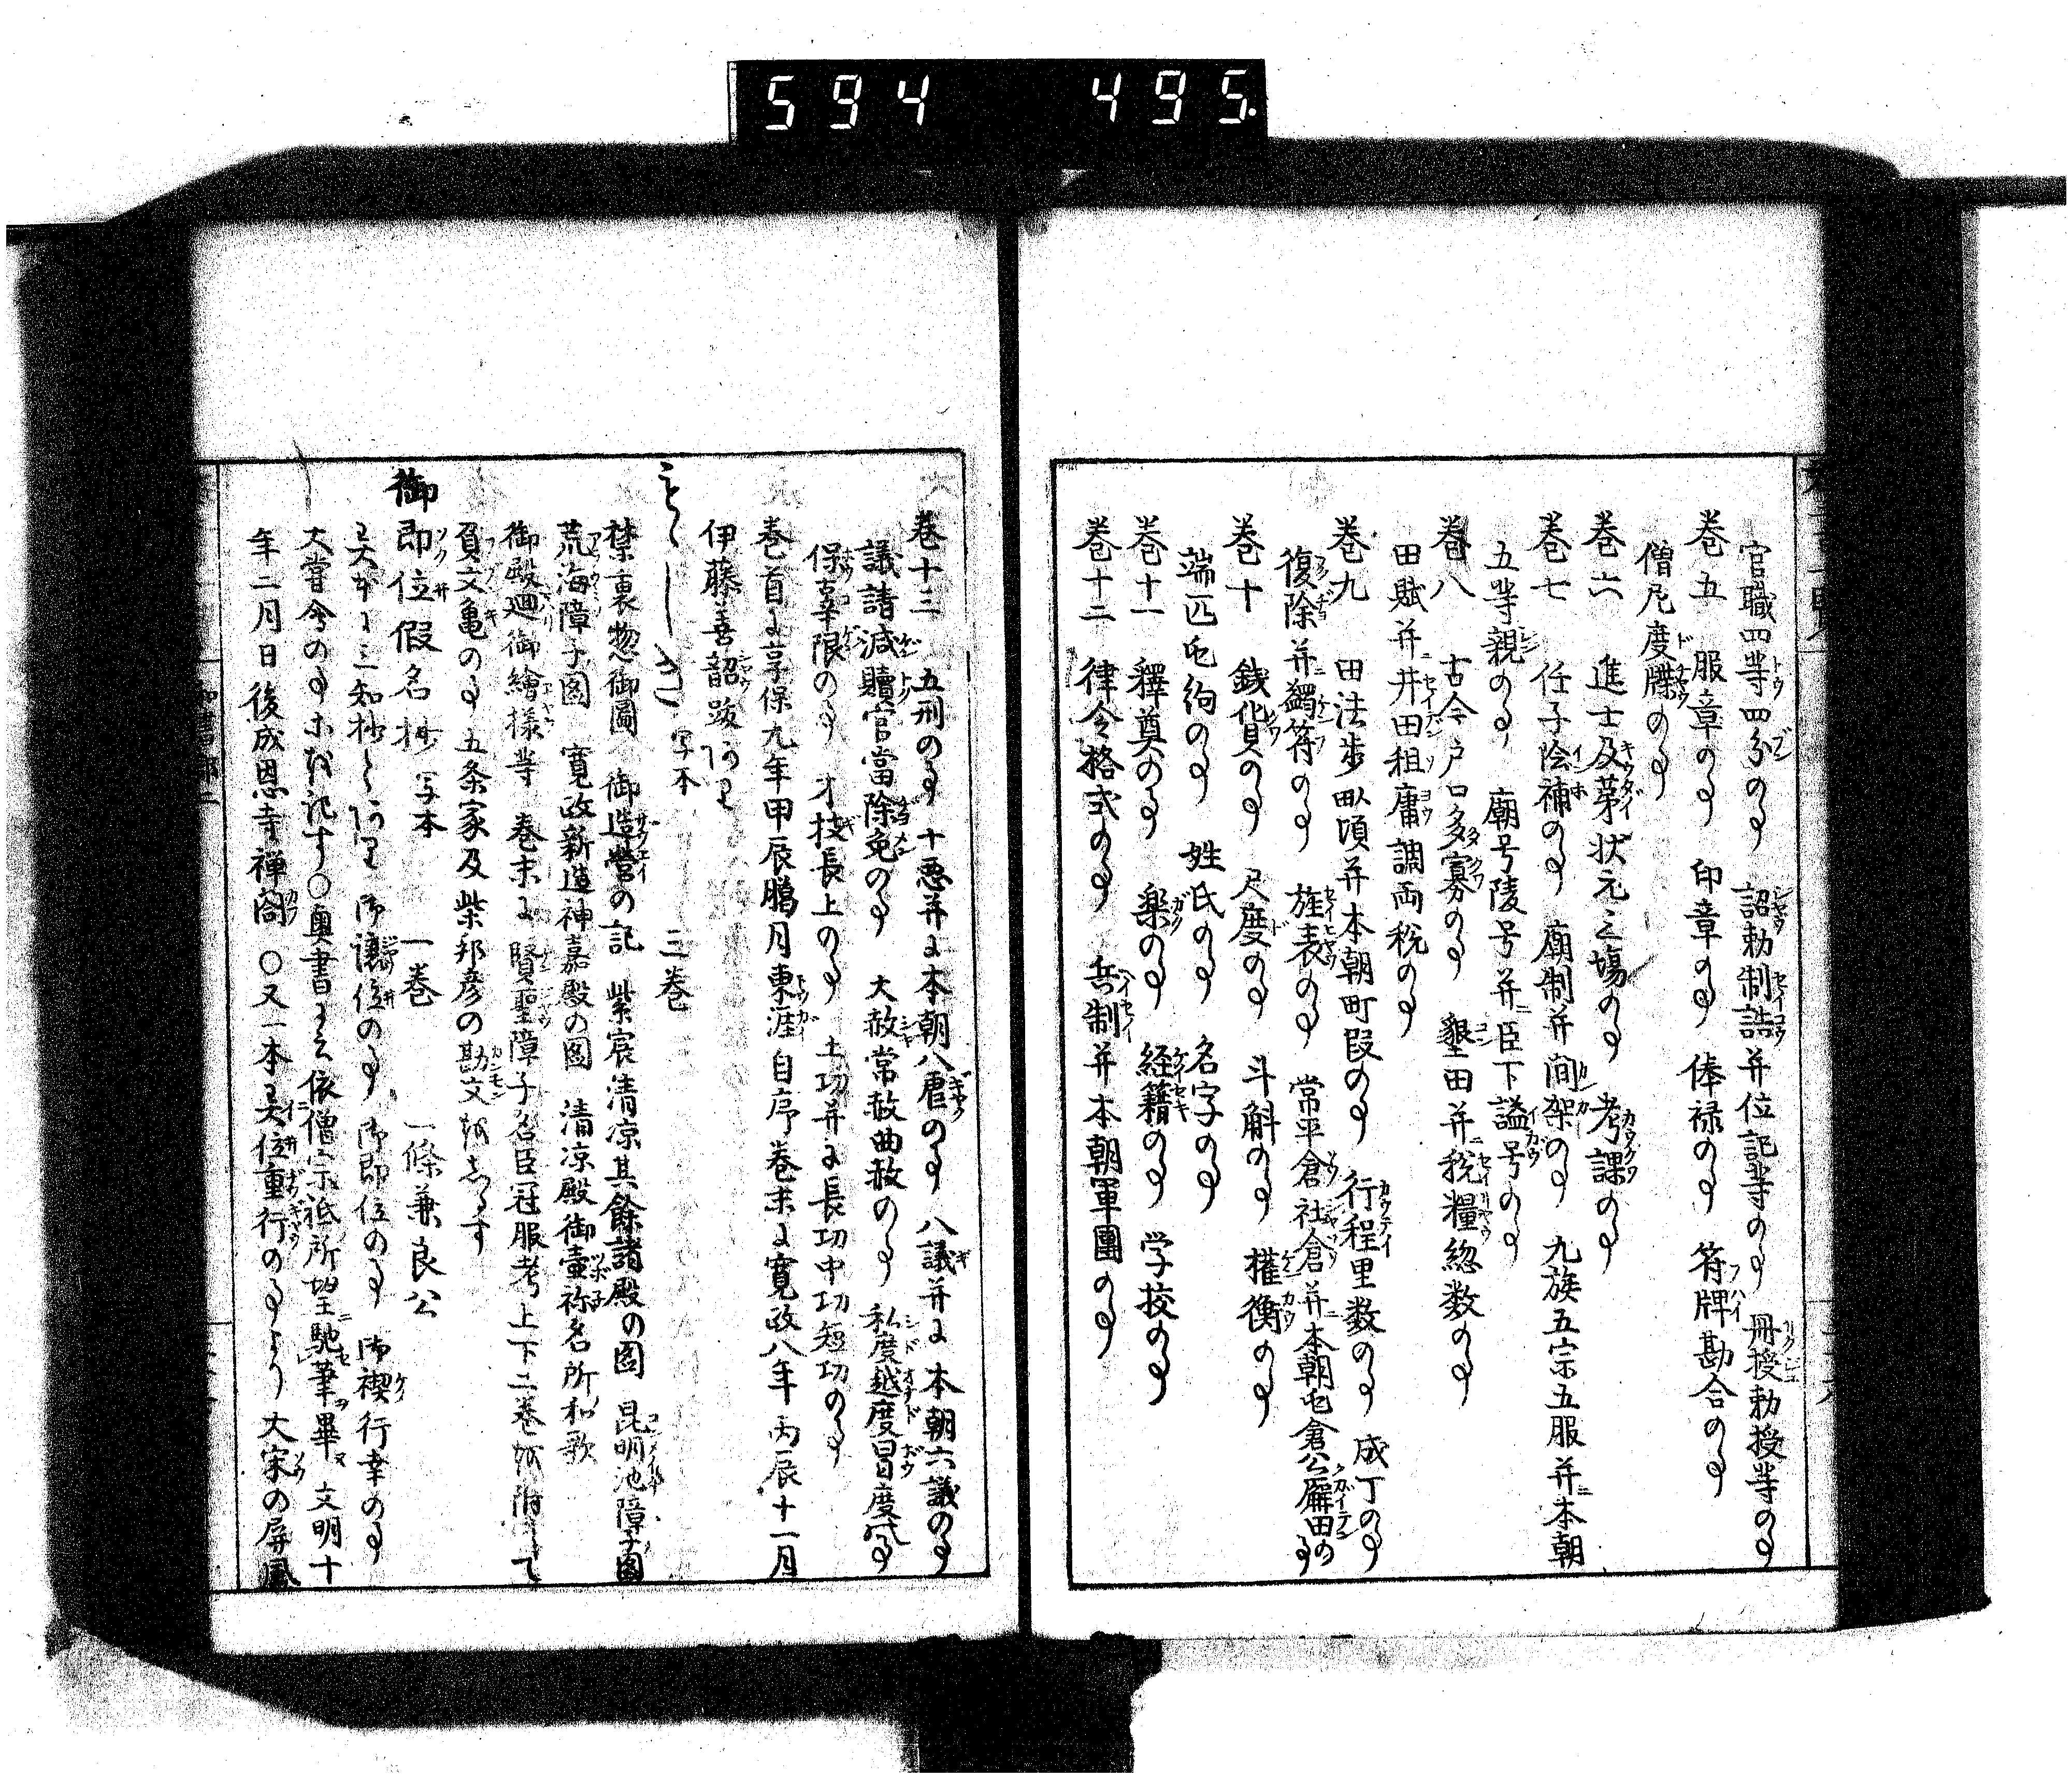 594 495.
官職四等四分の事 詔勅制誥并位記等の事 冊授勅授等の事
巻五 服章の事 印章の事 俸禄の事 符牌勘合の事
僧尼度牒の事
巻六 進士及第状元之場の事 考課の事
巻七 任子陰補の事 廟制并間架の事 九族五宗五服并本朝
五等親の事 廟号陵号并臣下謚号の事
巻八 古今戸口多寡の事 墾田并税糧総数の事
田賦并井田租庸調両税の事
巻九 田法歩畝頃并本朝町段の事 行程里数の事 成丁の事
復除并蠲符の事 旌表の事 常平倉社倉并本朝屯倉公廨田の事
巻十 銭貨の事 尺度の事 斗斛の事 権衡の事
端匹屯絇の事 姓氏の事 名字の事
巻十一 釋奠の事 楽の事 経籍の事 学校の事
巻十二 律令格式の事 兵制并本朝軍團の事
巻十三 五刑の事 十悪并に本朝八虐の事 八議并に本朝六議の事
議請減贖官當除免の事 大赦常赦曲赦の事 私度越度冒度の事
保辜限の事 才技長上の事 土功并に長功中功短功の事
巻首に享保九年甲辰臘月東涯自序巻末に寛政八年丙辰十一月
伊藤善韶跋あり
写本 三巻
禁裏惣御圖 御造營の記 紫宸清凉其餘諸殿の図 昆明池障子圖
荒海障子圖 寛政新造神嘉殿の図 清凉殿御壷祢名所和歌
御殿廻御繪様等 巻末に賢聖障子名臣冠服考上下二巻を附して
負文亀の事 五条家及柴邦彦の勘文をしるす
御即位假名抄 写本 一巻 一條兼良公
又大かた三知抄とあり 御譲位の事 御即位の事 御禊行幸の事
大嘗會の事等を記す○奥書に云依僧宗祇所望馳筆畢 文明十
年二月日後成恩寺禅閤 ○又一本天位重行の事より 大宋の屏風